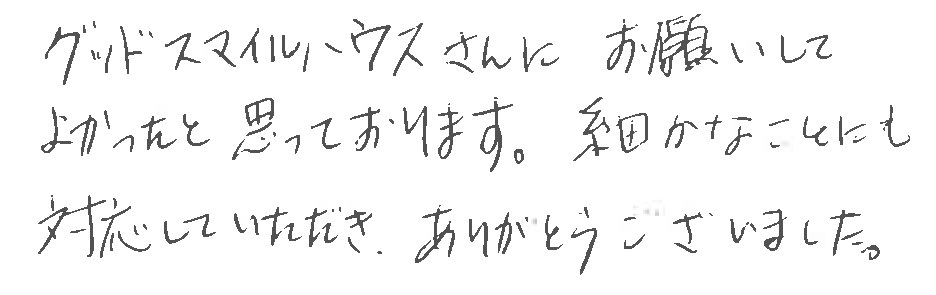 グッドスマイルハウスさんに お願いして
よかったと思っております。細かなことにも
対応していただき、ありがとうございました。